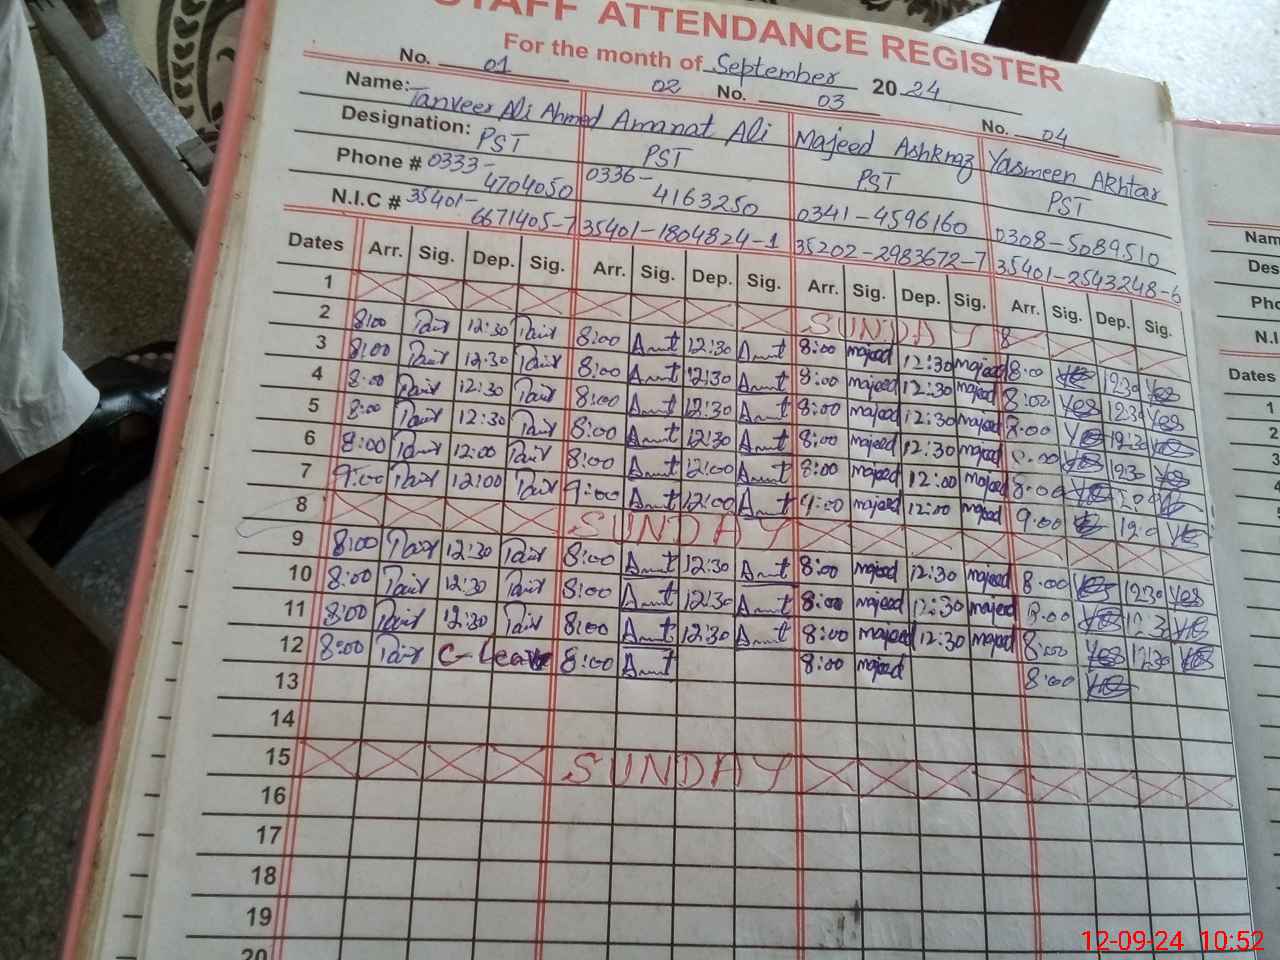 STAFF ATTENDANCE REGISTER
For the month of September 2024
No. 01 02 No. 03 No. 04
Name: Tanveer Ali Ahmed Amanat Ali Majeed Ashkraz Yasmeen Akhtar
Designation: PST PST PST PST
Phone # 0333-4704050 0336-4163250 0341-4596160 0308-5089510
N.I.C # 35401-6671405-7 35401-1804824-1 35202-2983672-7 35401-2543248-6
Dates Arr. Sig. Dep. Sig. Arr. Sig. Dep. Sig. Arr. Sig. Dep. Sig. Arr. Sig. Dep. Sig.
1 SUNDAY 8
2 8:00 12:30 8:00 Amt 12:30 Amt 8:00 majeed 12:30 majeed 8:00 Yes 12:30 Yes
3 8:00 12:30 8:00 Amt 12:30 Amt 8:00 majeed 12:30 majeed 8:00 Yes 12:30 Yes
4 8:00 12:30 8:00 Amt 12:30 Amt 8:00 majeed 12:30 majeed 8:00 Yes 12:30 Yes
5 8:00 12:30 8:00 Amt 12:30 Amt 8:00 majeed 12:30 majeed 8:00 Yes 12:30 Yes
6 8:00 12:00 8:00 Amt 12:00 Amt 8:00 majeed 12:00 majeed 8:00 Yes Yes
7 9:00 12:00 9:00 Amt 12:00 Amt 9:00 majeed 12:00 majeed 9:00 Yes
8 SUNDAY
9 8:00 12:30 8:00 Amt 12:30 Amt 8:00 majeed 12:30 majeed 8:00 Yes 12:30 Yes
10 8:00 12:30 8:00 Amt 12:30 Amt 8:00 majeed 12:30 majeed 8:00 Yes 12:30 Yes
11 8:00 12:30 8:00 Amt 12:30 Amt 8:00 majeed 12:30 majeed 8:00 Yes 12:30 Yes
12 8:00 C-Leave 8:00 Amt 8:00 majeed 8:00 Yes
13
14
15 SUNDAY
16
17
18
19
20
Nam
Des
Pho
N.I
Dates
1
2
3
4
12-09-24 10:52